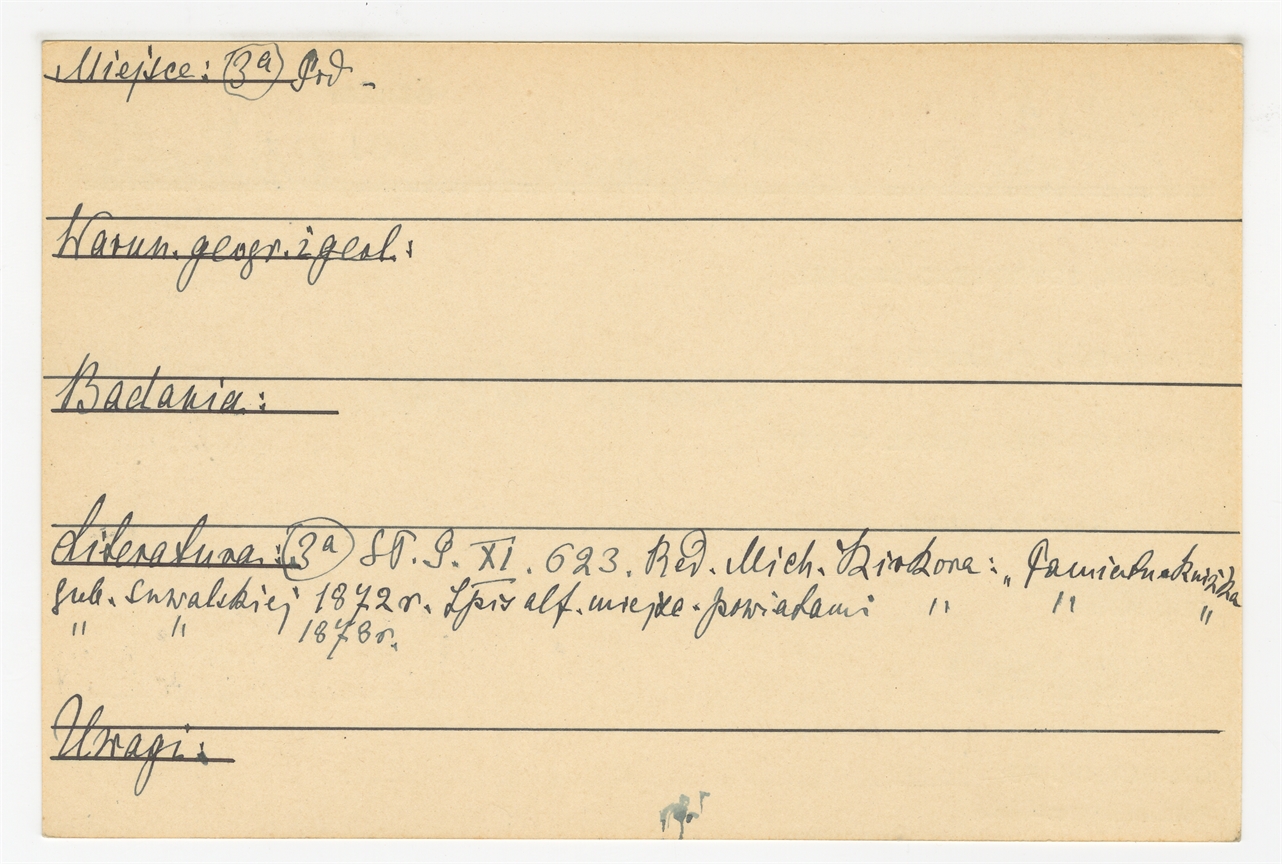 Miejsce: 3a Grd -
Warun. geogr. i geol.:
Badania:
Literatura: 3a ST. G. XI. 623. Red. Mich. Kirkora: „Pamiatn. Kniżka
gub. Suwalskiej 1872 r. Spis alf. miejsc. powiatami " " "
" " 1878 r.
Uwagi: